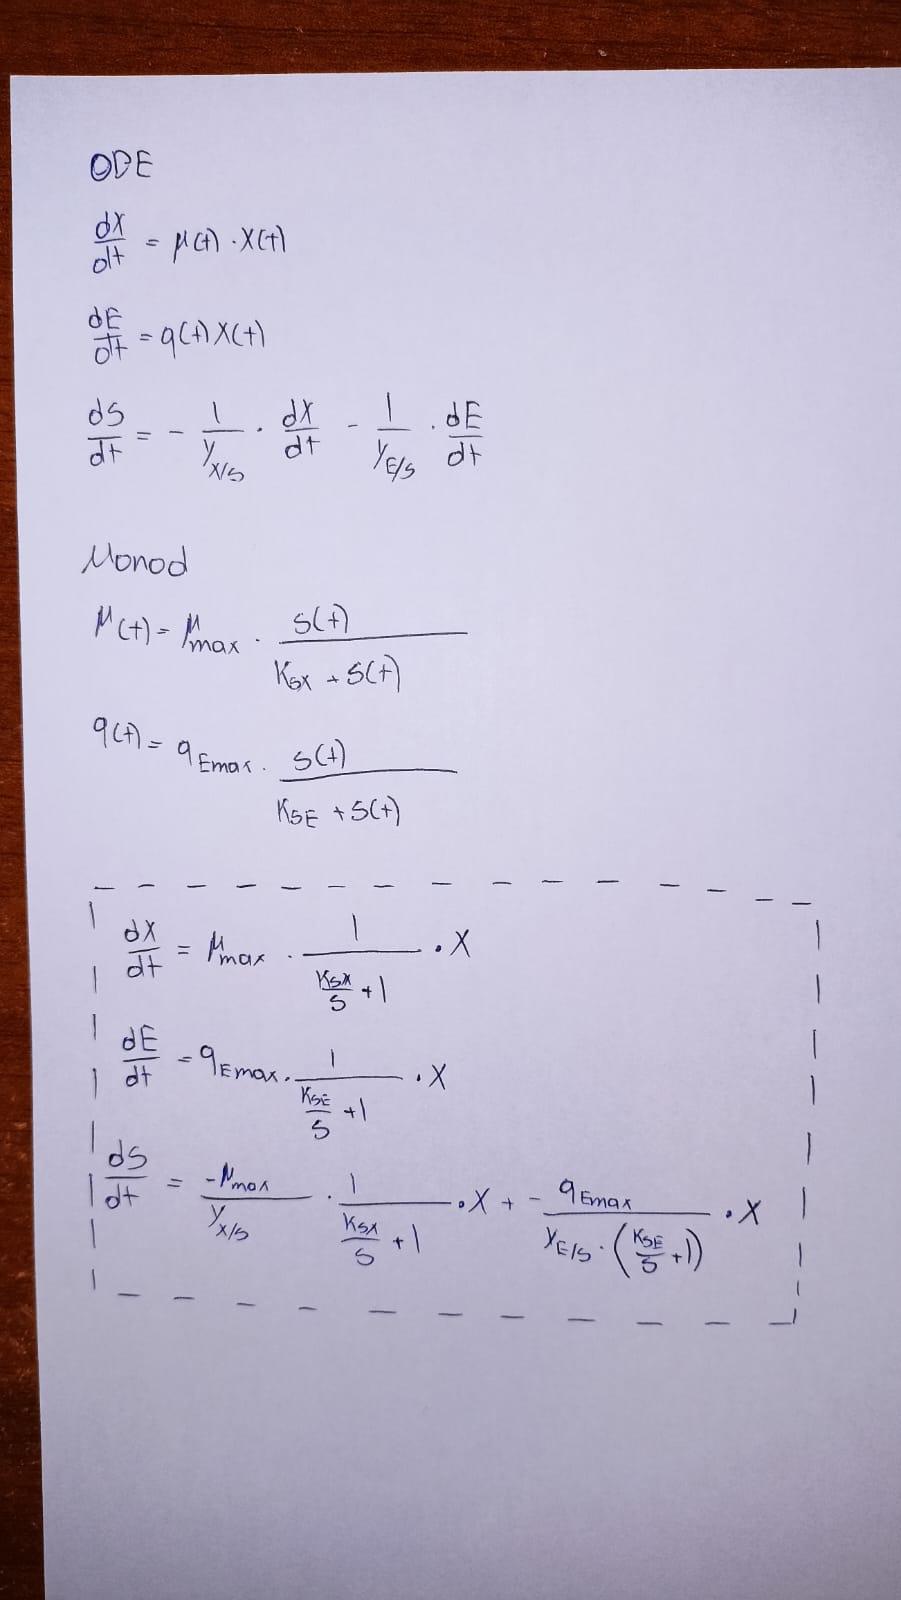 ODE
dX/dt = μ(t) · X(t)
dE/dt = q(t) X(t)
dS/dt = - 1/Y_X/S · dX/dt - 1/Y_E/S · dE/dt
Monod
μ(t) = μ_max · S(t)/(K_SX + S(t))
q(t) = q_Emax · S(t)/(K_SE + S(t))
dX/dt = μ_max · 1/(K_SX/S + 1) · X
dE/dt = q_Emax · 1/(K_SE/S + 1) · X
dS/dt = -μ_max/Y_X/S · 1/(K_SX/S + 1) · X + - q_Emax/(Y_E/S · (K_SE/S + 1)) · X